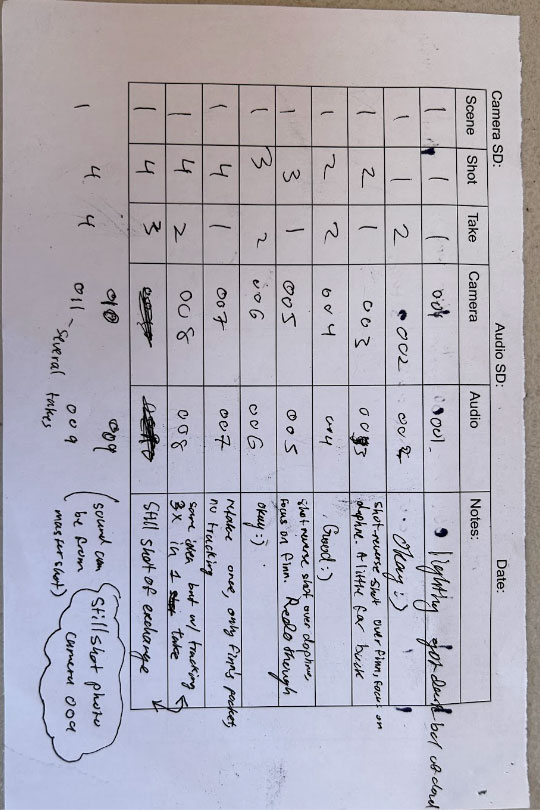 Camera SD: Audio SD: Date:
Scene Shot Take Camera Audio Notes:
1 1 1 001 001 lightly got dark bc of cloud
1 1 2 002 002 Okay :)
1 2 1 003 003 Shot-reverse shot over Finn, focus on
daphne. A little far back
1 2 2 004 004 Good :)
1 3 1 005 005 shot reverse shot over daphne,
focus on Finn. Redo though
1 3 2 006 006 Okay :)
1 4 1 007 007 retake once, only Finn's pocket,
no tracking
1 4 2 008 008 same idea but w/ tracking
3x in 1 take
1 4 3 Still shot of exchange
010 009 (sound can
1 4 4 011 - several takes 009 be from
master shot)
Still shot photo
camera 009